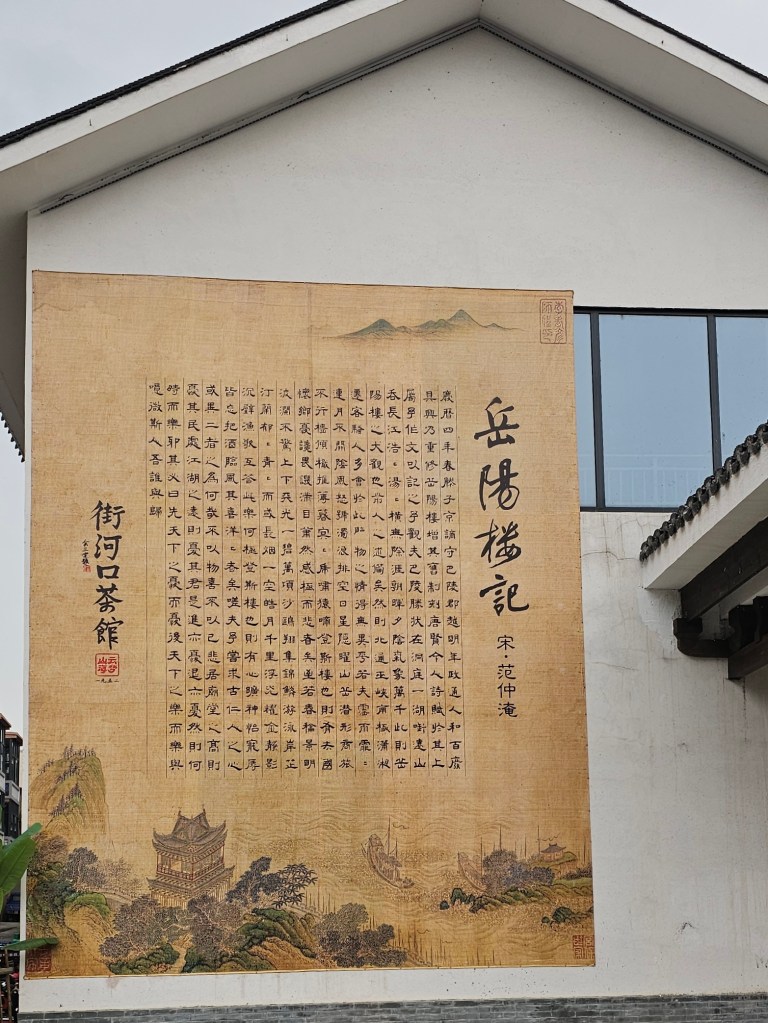 岳陽楼記
宋·范仲淹
慶曆四年春滕子京謫守巴陵郡越明年政通人和百廢
具興乃重修岳陽樓增其舊制刻唐賢今人詩賦於其上
屬予作文以記之予觀夫巴陵勝狀在洞庭一湖銜遠山
吞長江浩々湯々橫無際涯朝暉夕陰氣象萬千此則岳
陽樓之大觀也前人之述備矣然則北通巫峽南極瀟湘
遷客騷人多會於此覽物之情得無異乎若夫霪雨霏々
連月不開陰風怒號濁浪排空日星隱曜山岳潛形商旅
不行檣傾楫摧薄暮冥々虎嘯猿啼登斯樓也則有去國
懷鄉憂讒畏譏滿目蕭然感極而悲者矣至若春和景明
波瀾不驚上下天光一碧萬頃沙鷗翔集錦鱗游泳岸芷
汀蘭郁々青々而或長烟一空皓月千里浮光耀金靜影
沉璧漁歌互答此樂何極登斯樓也則有心曠神怡寵辱
皆忘把酒臨風其喜洋々者矣嗟夫予嘗求古仁人之心
或異二者之為何哉不以物喜不以己悲居廟堂之高則
憂其民處江湖之遠則憂其君是進亦憂退亦憂然則何
時而樂耶其必曰先天下之憂而憂後天下之樂而樂與
噫微斯人吾誰與歸
街河口茶館